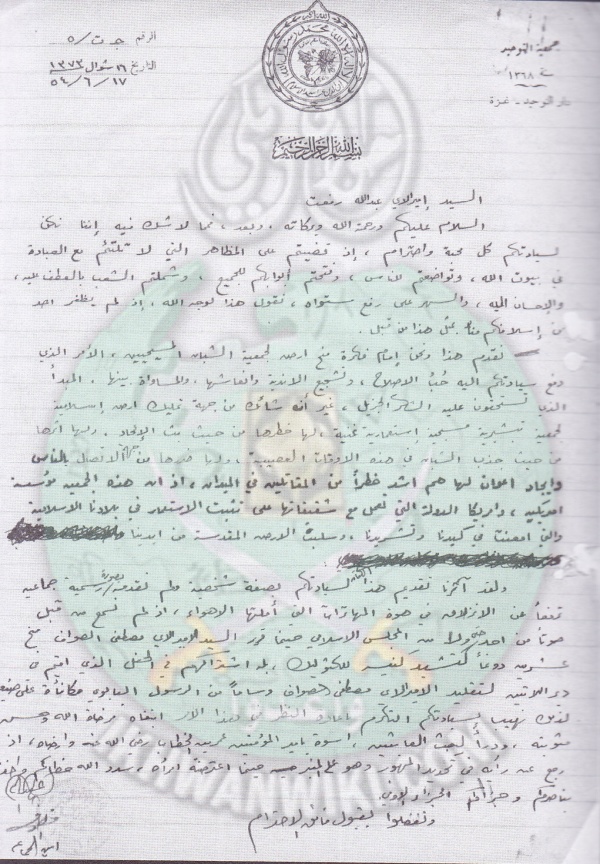 جمعية التوحيد
سنة ١٣٦٨
دار التوحيد - غزة
الرقم ج ت / ٥
التاريخ ١٦ شوال ١٣٧٣
١٧ / ٦ / ٥٤
بسم الله الرحمن الرحيم
السيد إميرالاي عبدالله رفعت
السلام عليكم ورحمة الله وبركاته، وبعد، فمما لا شك فيه إننا نكن
لسيادتكم كل محبة واحترام، إذ قضيتم على المظاهر التي لا تلتئم مع العبادة
في بيوت الله، وتواضعتم للناس، وفتحتم أبوابكم للجميع، وشملتم الشعب بالعطف عليه،
والإحسان إليه، والسهر على رفع مستواه، نقول هذا لوجه الله، إذ لم يظفر احد
من إسلافكم منا بمثل هذا من قبل.
نقدم هذا ونحن إمام فكرة منح ارض لجمعية الشبان المسيحيين، الأمر الذي
دفع سيادتكم اليه حب الاصلاح، وتشجيع الاندية وانعاشها، والمساواة بينها، المبدأ
الذي تستحقون عليه الشكر الجزيل، غير أنه شائك من جهة تمليك ارض إسلامية
لجمعية تبشيرية مسيحية إستعمارية محنية، لها خطرها من حيث بث الإلحاد، ولها أثرها
من حيث جذب الشبان في هذه الأوقات العصيبة، ولها ضررها من الاتصال بالناس
وإيجاد اعوان لها هم اشد خطراً من المقاتلين في الميدان، اذ ان هذه الجمعية مؤسسة
امريكية، وامريكا الدولة التي تعمل مع شقيقاتها على تثبيت الاستعمار في بلادنا الاسلامية
والتي امعنت في كيدنا وتشريدنا، وسلبت الارض المقدسة من ايدينا
ولقد آثرنا تقديم هذا لسيادتكم بصفة شخصية ولم نقدمه بصورة رسمية جماعية
تعففاً عن الانزلاق في هوة المهاترات التي أملتها الاهواء، اذ لم نسمع من قبل
صوتاً من احد حتى ولا من المجلس الاسلامي حينما قرر السيد الاميرالاي مصطفى الصواف منح
عشرين دونماً لتشييد كنيس للكاثوليك، بله اشتراكهم في الحفل الذي اقيم في
دير اللاتين لتقليد الاميرالاي مصطفى الصواف وساماً من الرسول البابوي مكافأة على صنيعه
لذلك نهيب بسيادتكم التكرم باعادة النظر في هذا الامر ابتغاء مرضاة الله وحسن
مثوبته، ودرءاً لعبث العابثين، اسوة بامير المؤمنين عمر بن الخطاب رضي الله عنه وارضاه، اذ
رجع عن رأيه في تحديد المهور وهو على المنبر حينما اعترضته امرأة، سدد الله خطاكم
وجزاكم الجزاء الاوفى
وتفضلوا بقبول فائق الاحترام